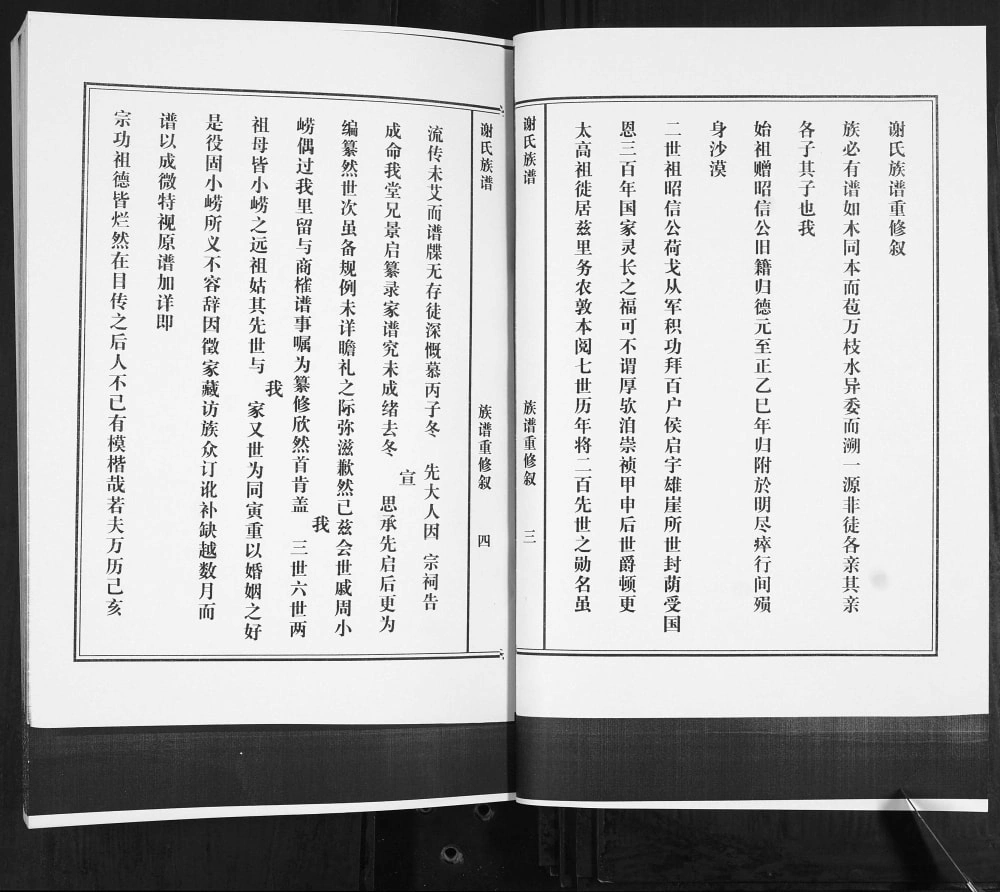 谢氏族谱重修叙
族必有谱如木同本而苞万枝水异委而溯一源非徒各亲其亲
各子其子也我
始祖赠昭信公旧籍归德元至正乙巳年归附於明尽瘁行间殒
身沙漠
二世祖昭信公荷戈从军积功拜百户侯启宇雄崖所世封荫受国
恩三百年国家灵长之福可不谓厚欤洎崇祯甲申后世爵顿更
太高祖徙居兹里务农敦本阅七世历年将二百先世之勋名虽
谢氏族谱 族谱重修叙 三
谢氏族谱 族谱重修叙 四
流传未艾而谱牒无存徒深慨慕丙子冬 先大人因 宗祠告
成命我堂兄景启纂录家谱究未成绪去冬 宣 思承先启后更为
编纂然世次虽备规例未详瞻礼之际弥滋歉然己兹会世戚周小
崂偶过我里留与商榷谱事嘱为纂修欣然首肯盖 我 三世六世两
祖母皆小崂之远祖姑其先世与 我 家又世为同寅重以婚姻之好
是役固小崂所义不容辞因徵家藏访族众订讹补缺越数月而
谱以成微特视原谱加详即
宗功祖德皆烂然在目传之后人不已有模楷哉若夫万历己亥